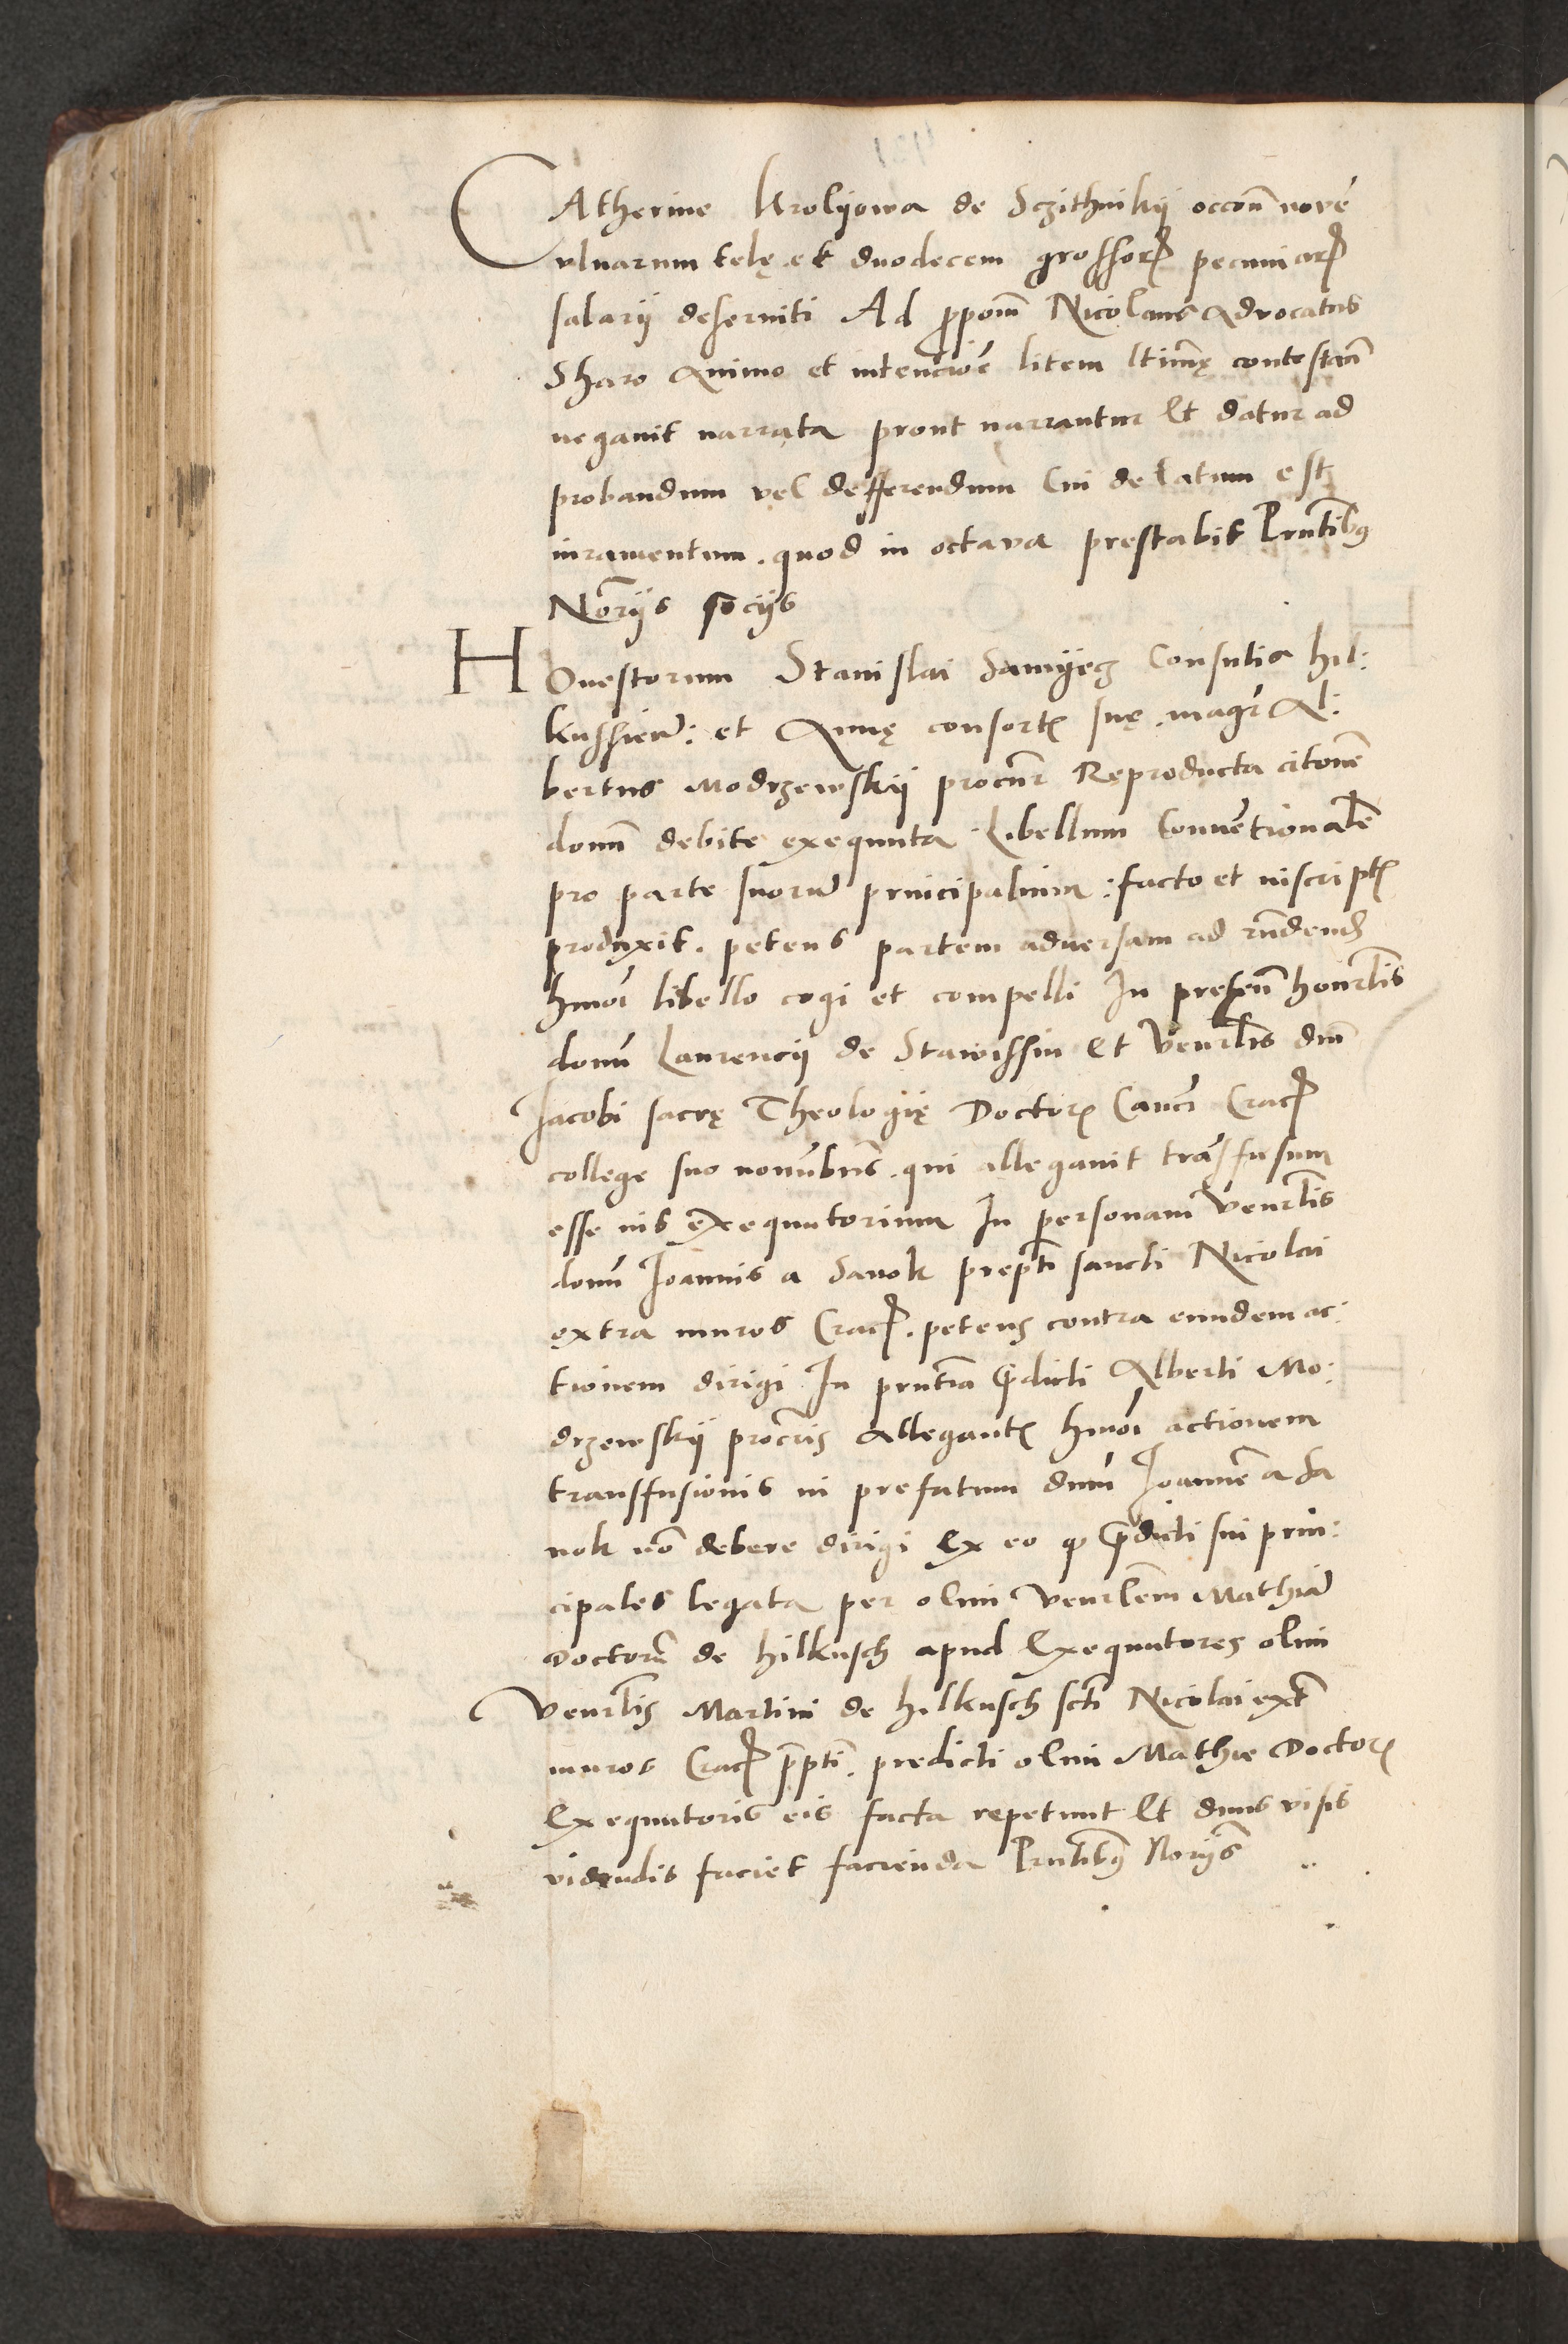 CAtherine Krolijowa de Sczithnikij occon̄ novē
vlnarum telę et duodecem grossorꝝ pecuniarꝝ
salarij deserviti Ad ꝓpom̄ Nicolaus Advocatus
Sharo Animo et intencioē litem ltimę contestan̄
negavit narrata prout narrantur Et datur ad
probandum vel defferendum Cui delatum est
iuramentum. quod in octava prestabit Pn̄tibꝰ
No͞rijs socijs
HOnestorum Stanislai Samijecz Consulis hil:
kussien̄: et Annę consortꝭ suę. magr̄ Al:
bertus Modrzewskij procūr Reproducta citoné
domū debite exequuta Libellum Conuētionalē
pro parte suorū principalium: facto et inscriptꝭ
produxit. petens partem adversam ad rn̄dendū
hmōi libello cogi et compelli In presen̄ honrl̄is
domī Laurencij de Stawissin Et Venrl̄is dnī
Jacobi sacrę Theologię Doctorꝭ Canci Cracꝭ
college suo nom̄bus. qui allegavit trāsfusum
esse ius exequutorium In personam Venrl̄is
domī Joannis a Sanok prep̄ti sancti Nicolai
extra muros Cracꝭ. petens contra eundem ac:
tionem dirigi In pn̄tia p̄dicti Alberti Mo:
drzewskij procr̄is Allegantꝭ hmōi actionem
transfusionis in prefatum dnm̄ Joannē a Sa
nok nō debere dirigi Ex eo ꝙ p̄dicti sui prin:
cipales legata per olim Venrl̄em Mathiā
Doctorē de hilkusch apud Exequutores olim
Venrl̄is Martini de hilkusch scti Nicolai ext̄
muros Cracꝭ p̄pti. predicti olim Mathie Doctorꝭ
Exequutoris eis facta repetunt Et dnus visis
videndis faciet facienda Pn̄tibꝰ No͞rijs